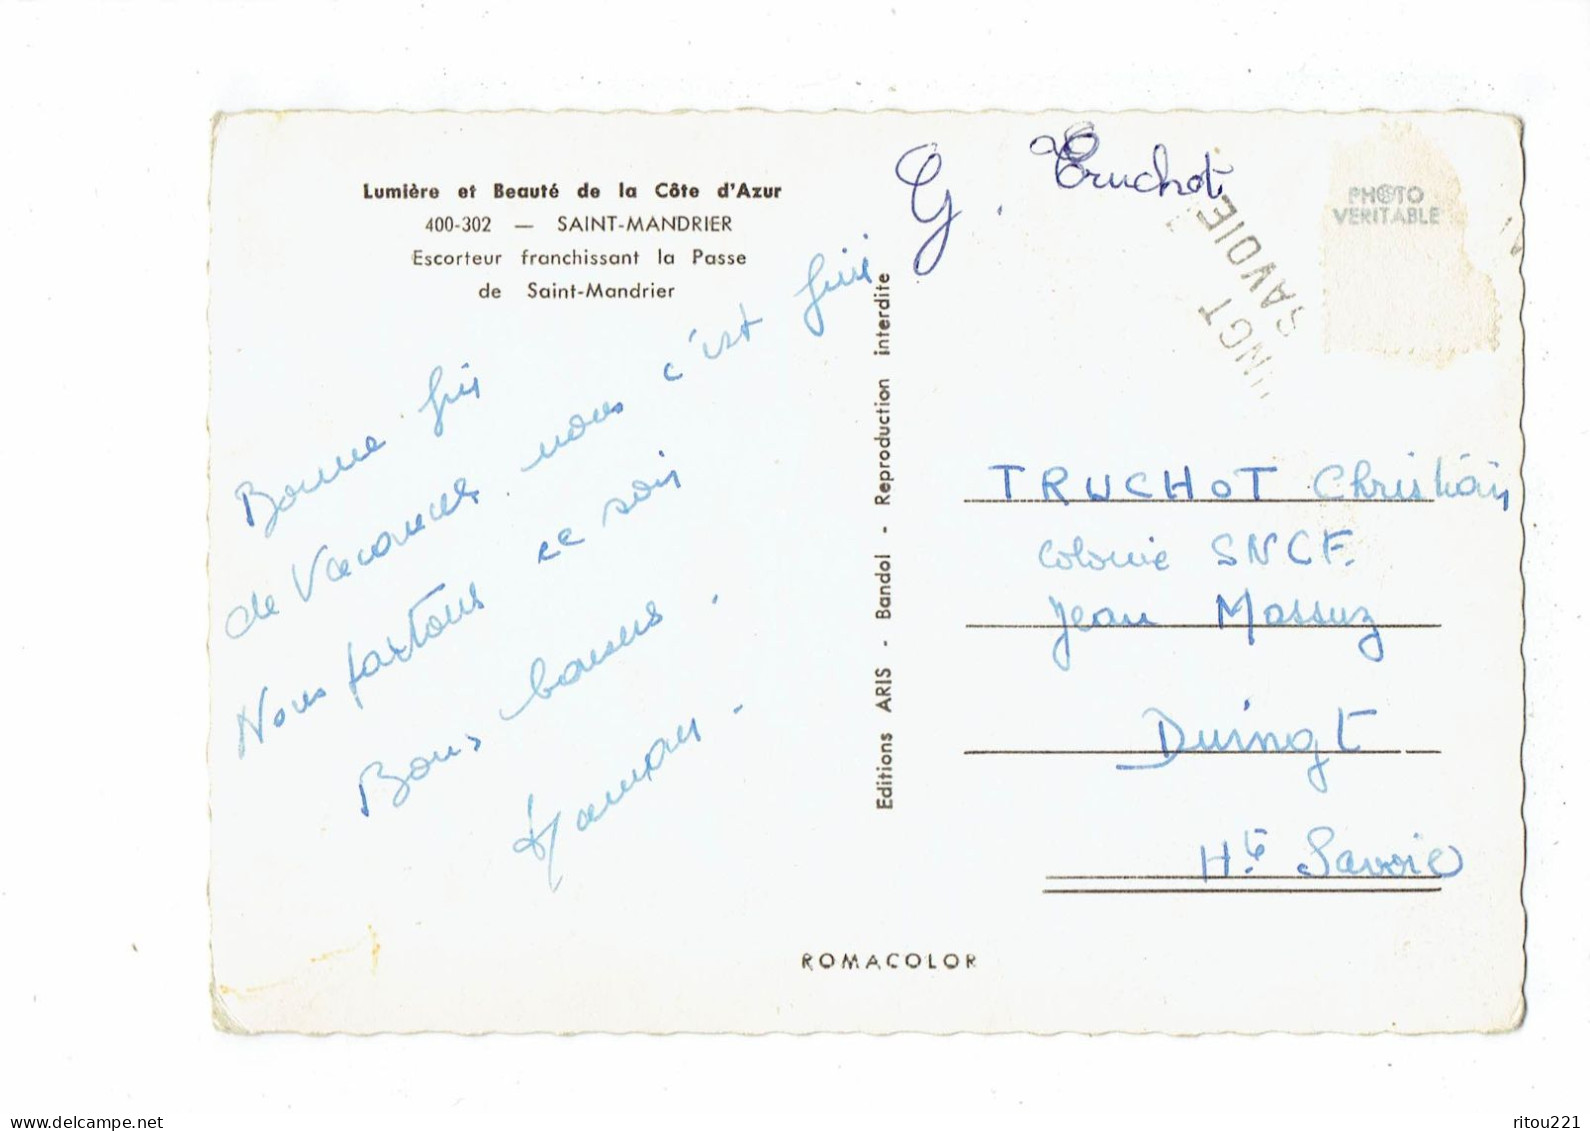 Lumière et Beauté de la Côte d'Azur
400-302 — SAINT-MANDRIER
Escorteur franchissant la Passe
de Saint-Mandrier
Bonne fin
de Vacances nous c'est fini
Nous partons ce soir
Bons baisers.
Maman.
Editions ARIS - Bandol - Reproduction interdite
G. Truchot
PHOTO
VERITABLE
INGT
SAVOIE
TRUCHOT Christian
Colonie SNCF.
Jean Massuz
Duingt
Hte Savoie
ROMACOLOR
www.delcampe.net
ritou221